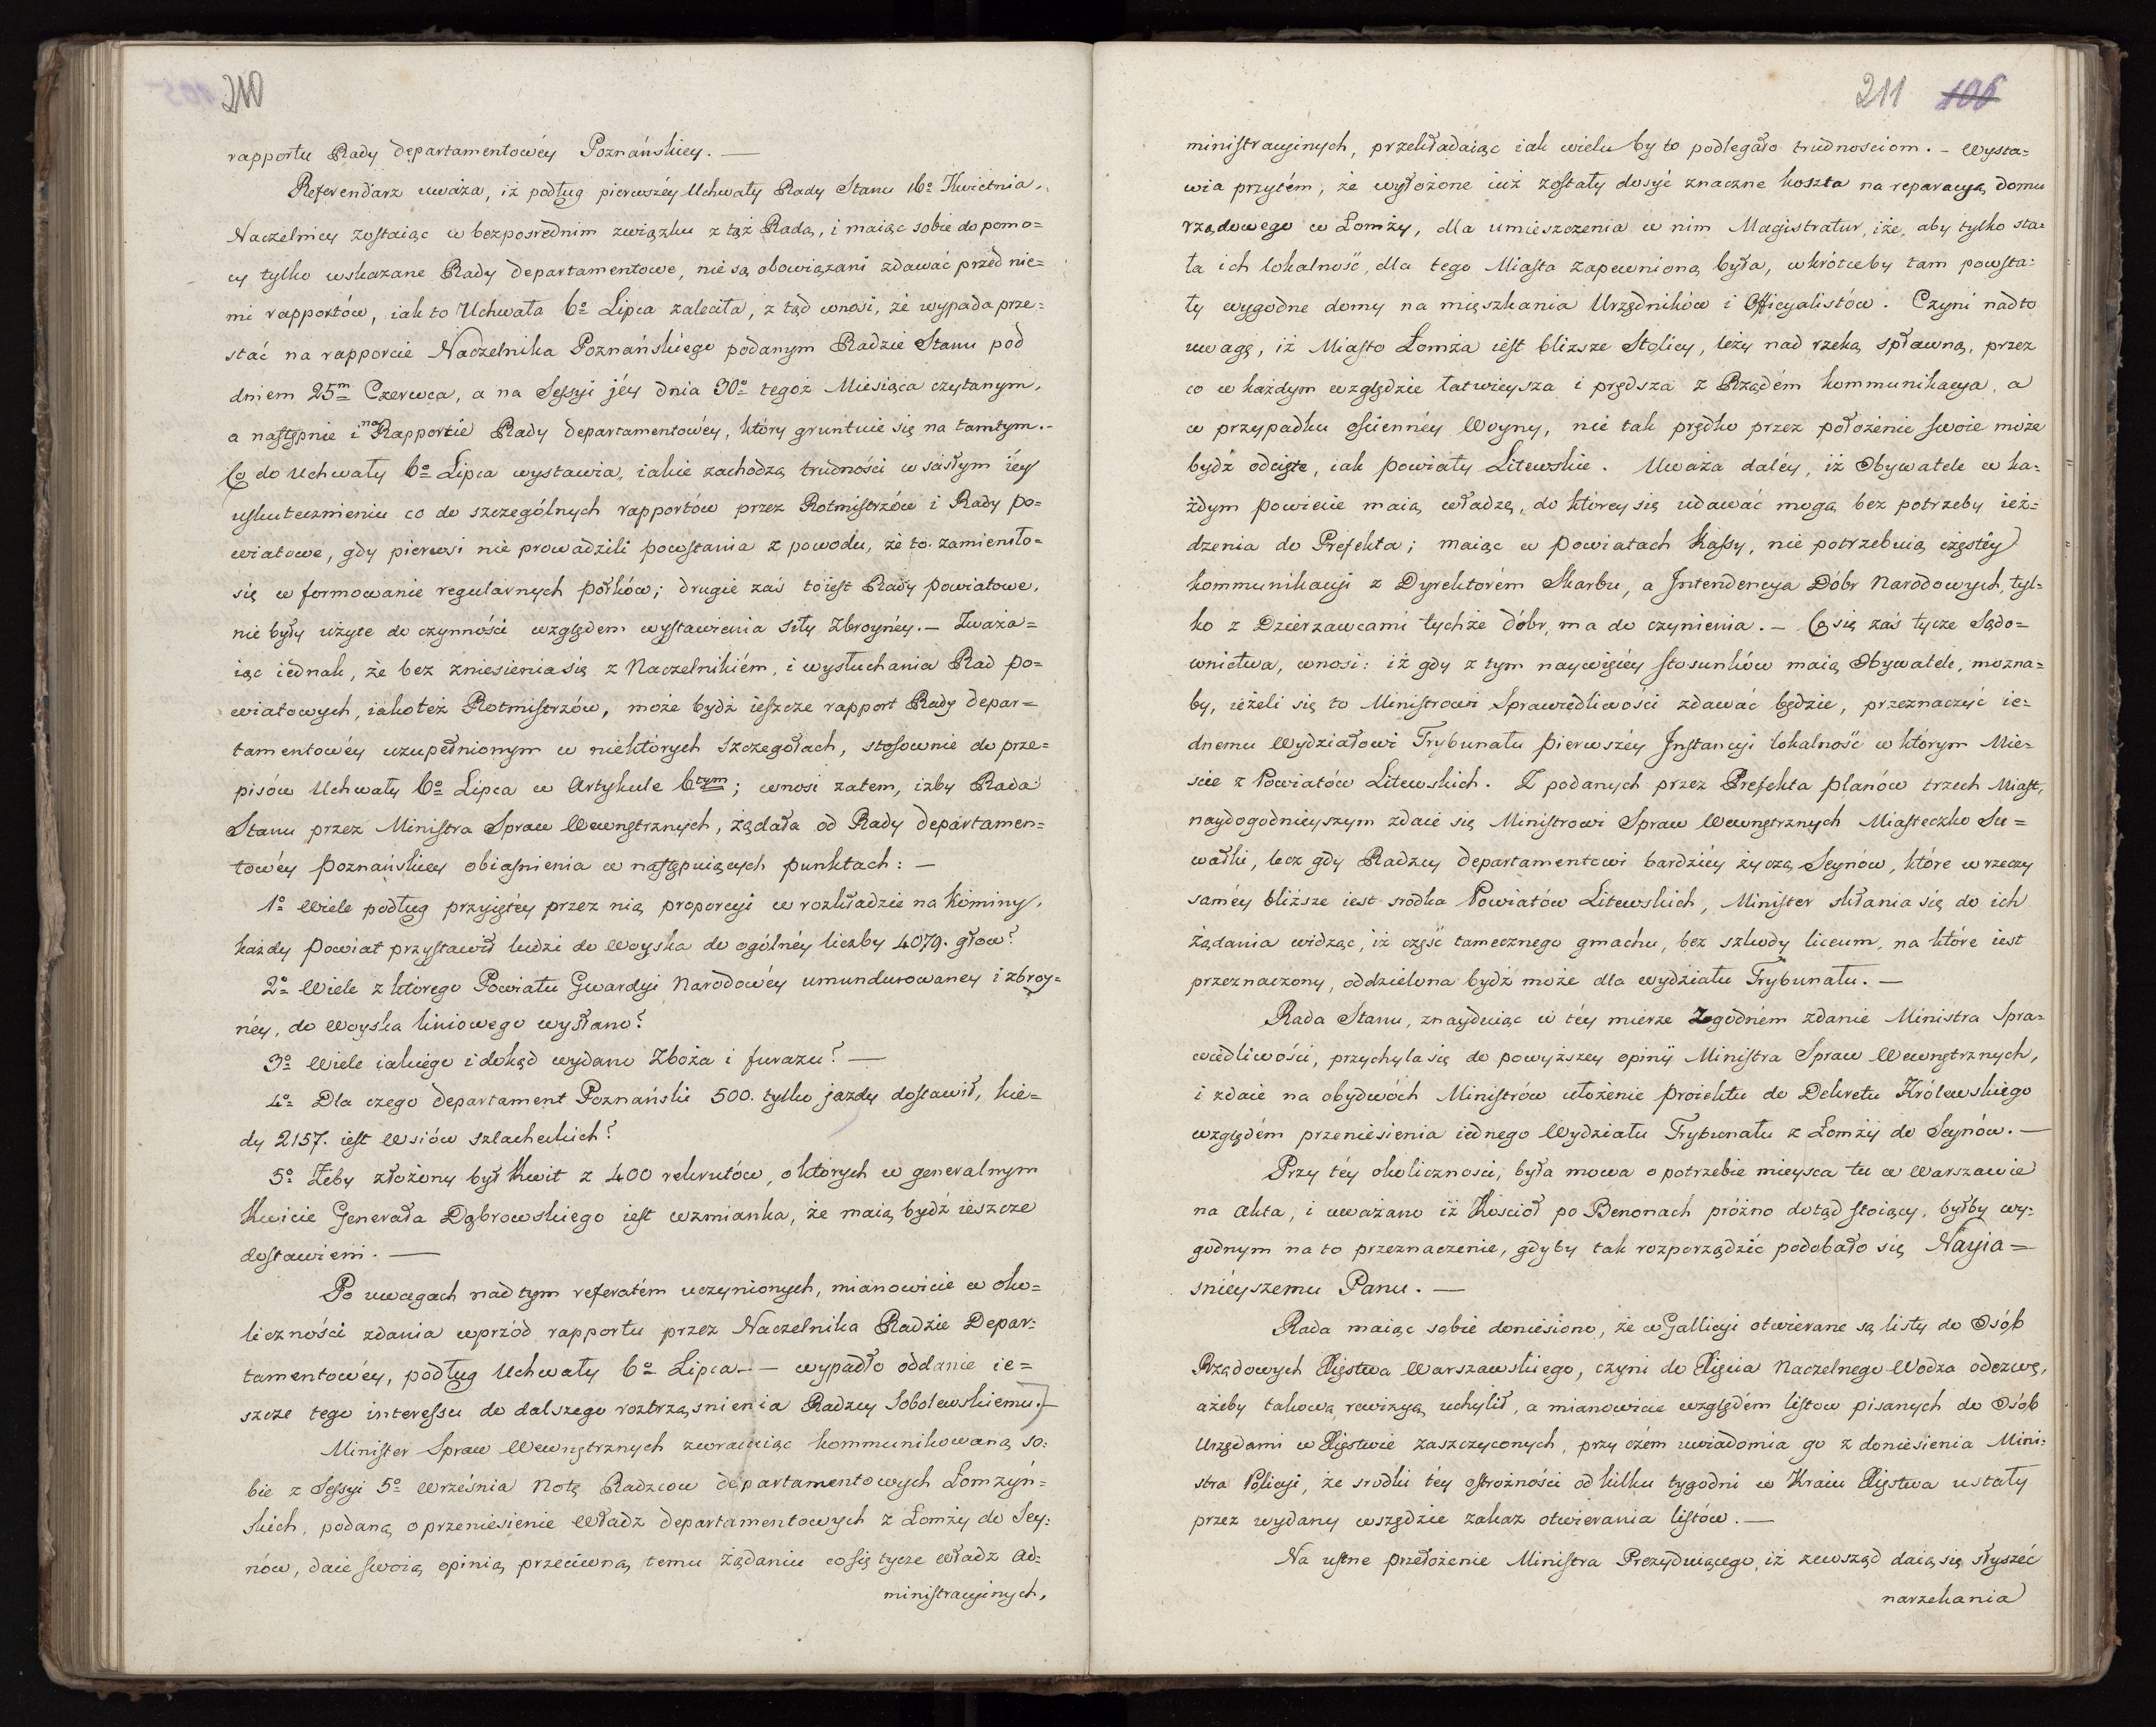 210
rapportu Rady departamentowéy Poznańskiey. —
Referendarz uważa, iż podług pierwszéy Uchwały Rady Stanu 16º Kwietnia,
Naczelnicy zostaiąc w bezpośrednim związku z tąż Radą, i maiąc sobie do pomo=
cy tylko wskazane Rady departamentowe, nie są obowiązani zdawać przed nie=
mi rapportów, iak to Uchwała 6º Lipca zaleciła, z tąd wnosi, że wypada prze=
stać na rapporcie Naczelnika Poznańskiego podanym Radzie Stanu pod
dniem 25m Czerwca, a na Sessyi jéy dnia 30º tegoż Miesiąca czytanym,
a następnie i na Rapporcie Rady departamentowéy, który gruntuie się na tamtym.-
Co do Uchwały 6º Lipca wystawia, iakie zachodzą trudności w ścisłym iéy
uskutecznieniu co do szczególnych rapportów przez Rotmistrzów i Rady po=
wiatowe, gdy pierwsi nie prowadzili powstania z powodu, że to zamieniło=
się w formowanie regularnych półków; drugie zaś toiest Rady powiatowe,
nie były użyte do czynności względem wystawienia siły zbroynéy.— Zważa=
iąc iednak, że bez zniesienia się z Naczelnikiém, i wysłuchania Rad po=
wiatowych, iakoteż Rotmistrzów, może bydź ieszcze rapport Rady depar=
tamentowéy uzupełnionym w niektórych szczegółach, stosownie do prze=
pisów Uchwały 6º Lipca w Artykule 6tym; wnosi zatem, iżby Rada
Stanu przez Ministra Spraw Wewnętrznych, żądała od Rady departamen=
towéy poznańskiey obiaśnienia w następuiących punktach: —
1º Wiele podług przyiętéy przez nią proporcyi w rozkładzie na kominy,
każdy Powiat przystawił ludzi do woyska do ogólnéy liczby 4079. głow?
2º Wiele z którego Powiatu Gwardyi Narodowéy umundurowaney i zbroy=
néy, do woyska liniowego wysłano?
3º Wiele iakiego i dokąd wydano zboża i furażu? —
4º Dla czego departament Poznański 500. tylko jazdy dostawił, kie=
dy 2157. iest wsiów szlacheckich?
5º Żeby złożony był kwit z 400 rekrutów, o których w generalnym
kwicie Generała Dąbrowskiego iest wzmianka, że maią bydź ieszcze
dostawieni. —
Po uwagach nad tym referatém uczynionych, mianowicie w oko=
liczności zdania wprzód rapportu przez Naczelnika Radzie Depar=
tamentowéy, podług Uchwały 6º Lipca — wypadło oddanie ie=
szcze tego interessu do dalszego roztrząsnienia Radzcy Sobolewskiemu.—
Minister Spraw Wewnętrznych zwracaiąc kommunikowaną so=
bie z Sessyi 5º Września Notę Radzcow departamentowych Łomżyń=
skich, podaną o przeniesienie Władz departamentowych z Łomży do Sey=
nów, daie swoią opinią przeciwną temu żądaniu co się tycze władz ad=
ministracyinych,
211 106
ministracyinych, przekładaiąc iak wielu by to podlegało trudnościom. - Wysta=
wia przytém, że wyłożone iuż zostały dosyć znaczne koszta na reparacyą domu
rządowego w Łomży, dla umieszczenia w nim Magistratur, iże, aby tylko sta=
ła ich lokalność, dla tego Miasta zapewniona była, wkrótceby tam powsta=
ły wygodne domy na mięszkania Urzędników i Officyalistów. Czyni nadto
uwagę, iż Miasto Łomża iest bliższe Stolicy, leży nad rzeką spławną, przez
co w każdym względzie łatwieysza i prędsza z Rządém kommunikacya, a
w przypadku ościennéy Woyny, nie tak prędko przez położenie swoie może
bydź odcięte, iak powiaty Litewskie. Uważa daléy, iż Obywatele w ka=
żdym powiecie maią władzę, do którey się udawać mogą bez potrzeby ież=
dzenia do Prefekta; maiąc w Powiatach kassy, nie potrzebuią częstéy
kommunikacyi z Dyrektorém Skarbu, a Intendencya Dóbr Narodowych, tyl=
ko z Dzierzawcami tychże dóbr, ma do czynienia. — Co się zaś tycze Sądo=
wnictwa, wnosi: iż gdy z tym naywięcéy stosunków maią Obywatele, można=
by, ieżeli się to Ministrowi Sprawiedliwości zdawać będzie, przeznaczyć ie=
dnemu Wydziałowi Trybunału pierwszéy Instancyi lokalność w którym Mie=
ście z Powiatów Litewskich. Z podanych przez Prefekta planów trzech Miast,
naydogodnieyszym zdaie się Ministrowi Spraw Wewnętrznych Miasteczko Su=
wałki, lecz gdy Radzcy departamentowi bardziéy życzą Seynów, które w rzeczy
saméy bliższe iest srodka Powiatów Litewskich, Minister skłania się do ich
żądania widząc, iż część tamecznego gmachu, bez szkody liceum, na które iest
przeznaczony, oddzielona bydź może dla wydziału Trybunału. —
Rada Stanu, znayduiąc w téy mierze zgodném zdanie Ministra Spra=
wiedliwości, przychyla się do powyższey opinii Ministra Spraw Wewnętrznych,
i zdaie na obydwóch Ministrów ułożenie proiektu do Dekretu Królewskiego
względém przeniesienia iednego Wydziału Trybunału z Łomży do Seynów. —
Przy téy okoliczności, była mowa o potrzebie mieysca tu w Warszawie
na Akta, i uważano iż Kościoł po Benonach próżno dotąd stoiący, byłby wy=
godnym na to przeznaczenie, gdyby tak rozporządzić podobało się Nayia=
śnieyszemu Panu. —
Rada maiąc sobie doniesiono, że w Gallicyi otwierane są listy do Osób
Rządowych Xięstwa Warszawskiego, czyni do Xięcia Naczelnego Wodza odezwę,
ażeby takową rewizyą uchylił, a mianowicie względém listow pisanych do Osób
Urzędami w Xięstwie zaszczyconych, przy czém uwiadomia go z doniesienia Mini=
stra Policyi, że srodki téy ostrożności od kilku tygodni w Kraiu Xięstwa ustały
przez wydany wszędzie zakaz otwierania listów. —
Na ustne przełożenie Ministra Prezyduiącego, iż zewsząd daią się słyszeć
narzekania